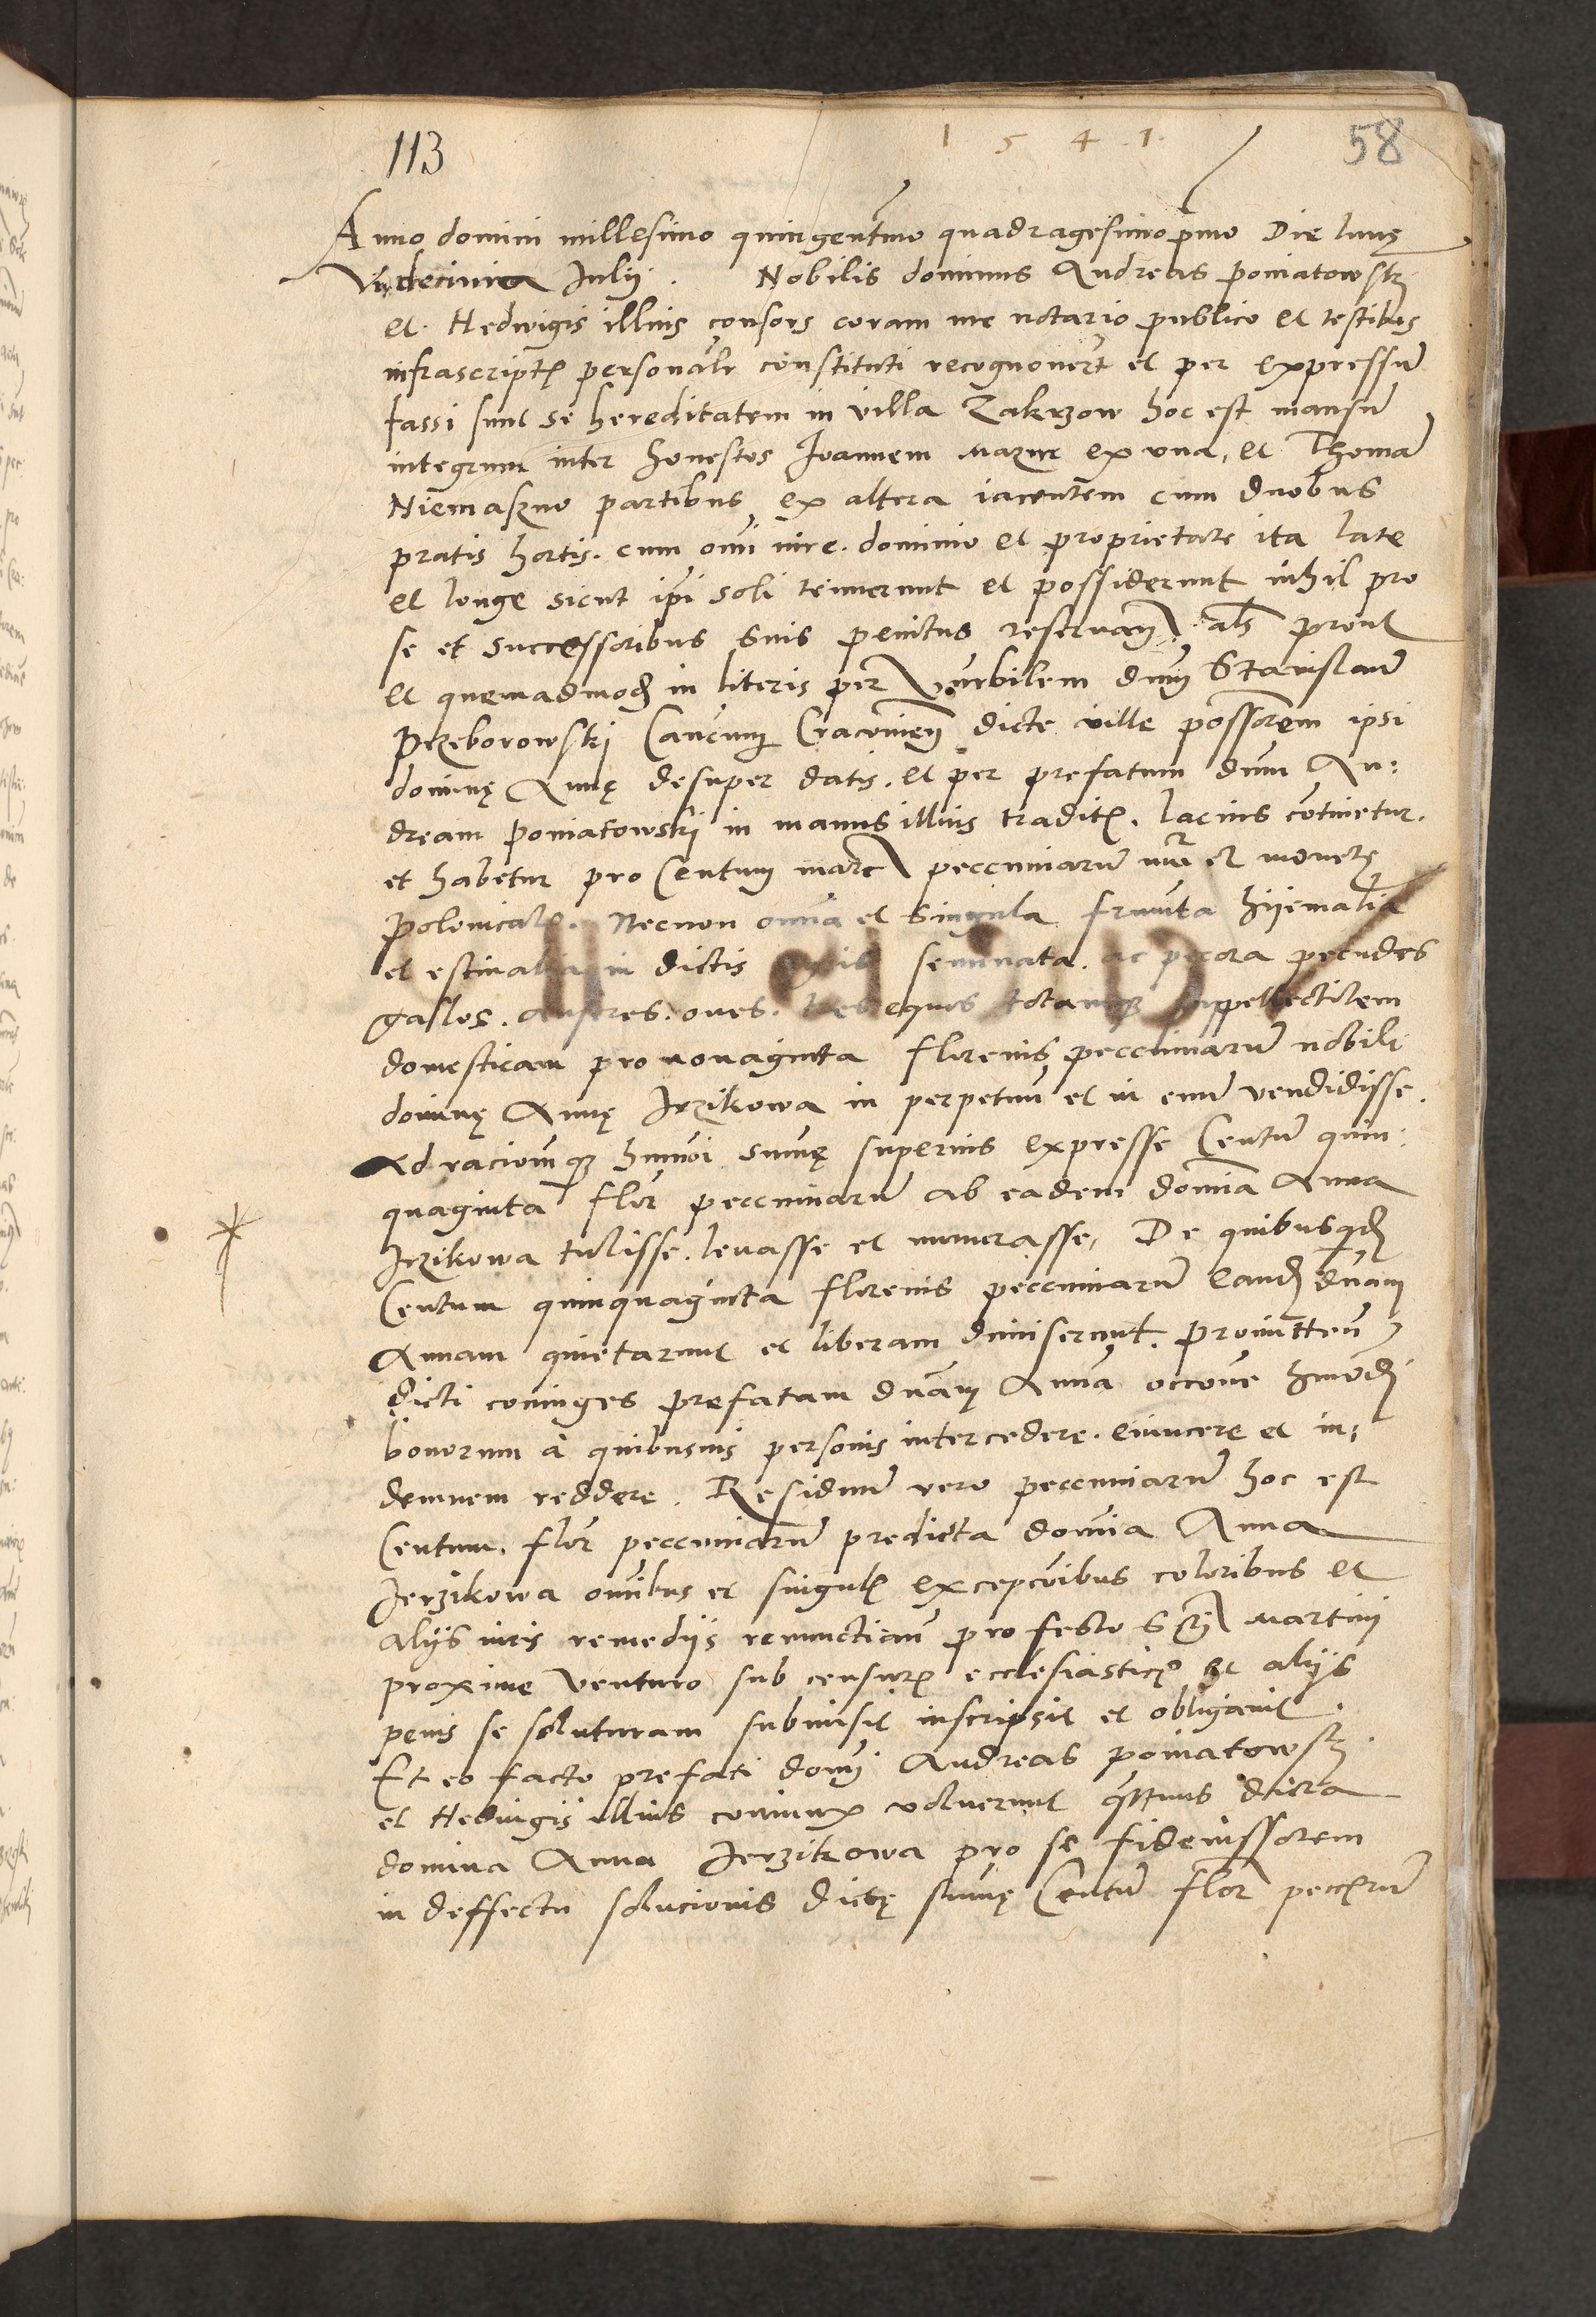 113 1 5 4 1 58
Anno domini millesimo quingentmo quadragesimo pmo Die lunę
Vndecima Julij. Nobilis dominus Andreas poniatowskj
et Hedwigis illius consors coram me notario publico et testibus
infrascriptis personalr constituti recognouert et per expressū
fassi sunt se hereditatem in villa Zakrzow hoc est mansū
integrum inter honestos Joannem mazur ex vna, et Thomā
Niemaszno partibus ex altera iacentem cum duobus
pratis hortis. cum omi iure. dominio et proprietate ita late
et longe sicut ipi soli tenuerunt et possiderunt nihil pro
se et successoribus suis penitus reseruan. als prout
et quemadmod in literis per Venerbilem dnm Stanislauū
Przeborowskj Cancum Cracouien dicte ville possorem ipsi
dominę Annę desuper datis. et per prefatum dnm An:
dream poniatowskj in manus illius tradit. lacius cōtinetur.
et habetur pro Centum marc peccuniarū mūr et monete
polonicalis. Necnon omia et singula frumta hijemalia
et estiualia in dictis seminata. ac pecora pecudes
gallos. anseres. oues. equos totamq suppellectilem
domesticam pro nonaginta florenis peccuniarū nobili
dominę Annę Jrzikowa in perpetuū et in euū vendidisse.
Ad racionmq hmoi sumę superius expresse Centū quin:
quaginta flor peccuniarū ab eadem domina Anna
Jrzikowa tulisse. leuasse et numerasse, De quibusqd
Centum quinquaginta florenis peccuniarū eand dnam
Annam quietarunt et liberam dimiserunt. promitten
dicti coniuges prefatam dnam Annā occone hmodi
bonorum à quibusuis personis intercedere. euincere et in:
demnem reddere. Residuū vero peccuniarū hoc est
Centum. flor peccuniarū predicta domina Anna
Jerzikowa omibus et singulis excepcoibus coloribus et
alijs iuris remedijs renuncian pro festo Scti Martini
proxime venturo sub censuris ecclesiasticis et alijs
penis se soluturam submisit inscripsit et obligauit.
Et eo facto prefati domi Andreas poniatowskj
et Hedwigis illius coniunx voluerunt qtinus dicta
domina Anna Jerzikowa pro se fideiussorem
in deffectu solucionis dictę sumę Centū flor peccrū